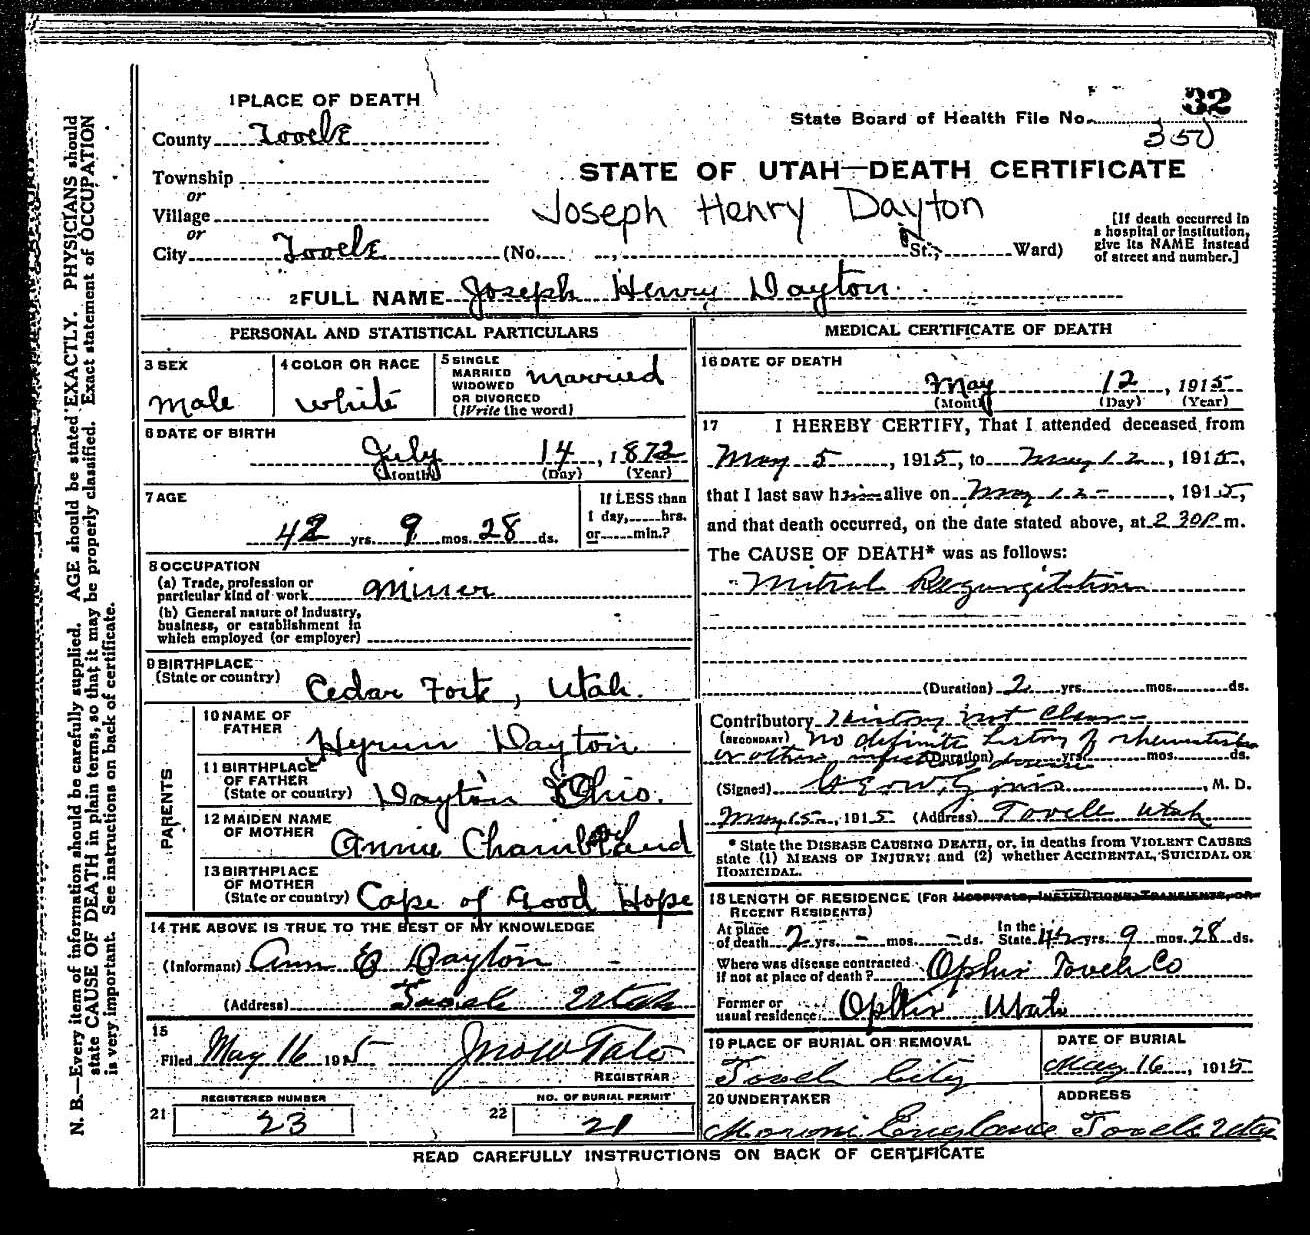 32
State Board of Health File No. 350
1 PLACE OF DEATH
County Tooele
STATE OF UTAH—DEATH CERTIFICATE
Township
or
Village
Joseph Henry Dayton
or
City Tooele (No. St.; Ward)
[If death occurred in
a hospital or institution,
give its NAME instead
of street and number.]
2 FULL NAME Joseph Henry Dayton
PERSONAL AND STATISTICAL PARTICULARS
3 SEX
Male
4 COLOR OR RACE
White
5 SINGLE
MARRIED
WIDOWED
OR DIVORCED
(Write the word)
Married
6 DATE OF BIRTH
July 14, 1872
(Month) (Day) (Year)
7 AGE
42 yrs. 9 mos. 28 ds.
If LESS than
1 day, hrs.
or min.?
8 OCCUPATION
(a) Trade, profession or
particular kind of work Miner
(b) General nature of Industry,
business, or establishment in
which employed (or employer)
9 BIRTHPLACE
(State or country) Cedar Fort, Utah.
PARENTS
10 NAME OF
FATHER Hyrum Dayton
11 BIRTHPLACE
OF FATHER
(State or country) Dayton Ohio.
12 MAIDEN NAME
OF MOTHER Annie
13 BIRTHPLACE
OF MOTHER
(State or country) Cape of Good Hope
14 THE ABOVE IS TRUE TO THE BEST OF MY KNOWLEDGE
(Informant) Ann E Dayton
(Address) Tooele Utah
15
Filed May 16 1915 Jno W Tate
REGISTRAR
21 REGISTERED NUMBER
23
22 NO. OF BURIAL PERMIT
21
MEDICAL CERTIFICATE OF DEATH
16 DATE OF DEATH
May 12, 1915
(Month) (Day) (Year)
17 I HEREBY CERTIFY, That I attended deceased from
May 5, 1915, to May 12, 1915,
that I last saw him alive on May 12, 1915,
and that death occurred, on the date stated above, at 2 30 P m.
The CAUSE OF DEATH* was as follows:
Mitral Regurgitation
(Duration) 2 yrs. mos. ds.
Contributory History not clear
(SECONDARY) No definite history of rheumatism
or other (Duration) yrs. mos. ds.
(Signed) M. D.
May 15, 1915 (Address) Tooele Utah
* State the DISEASE CAUSING DEATH, or, in deaths from VIOLENT CAUSES
state (1) MEANS OF INJURY; and (2) whether ACCIDENTAL, SUICIDAL OR
HOMICIDAL.
18 LENGTH OF RESIDENCE (FOR HOSPITALS, INSTITUTIONS, TRANSIENTS, OR
RECENT RESIDENTS)
At place
of death 2 yrs. - mos. - ds. In the
State 42 yrs. 9 mos. 28 ds.
Where was disease contracted
If not at place of death? Ophir Tooele Co
Former or
usual residence Ophir Utah
19 PLACE OF BURIAL OR REMOVAL
Tooele City
DATE OF BURIAL
May 16, 1915
20 UNDERTAKER
Moroni England
ADDRESS
Tooele Utah
READ CAREFULLY INSTRUCTIONS ON BACK OF CERTIFICATE
N. B.—Every item of information should be carefully supplied. AGE should be stated EXACTLY. PHYSICIANS should
state CAUSE OF DEATH in plain terms, so that it may be properly classified. Exact statement of OCCUPATION
is very important. See instructions on back of certificate.